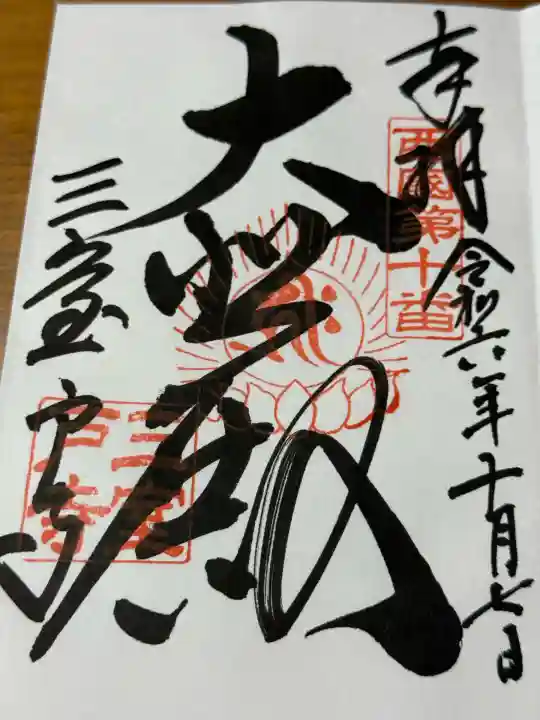 奉拝
令和六年十月七日
西國第十番
大悲殿
三室戸寺
三室戸寺